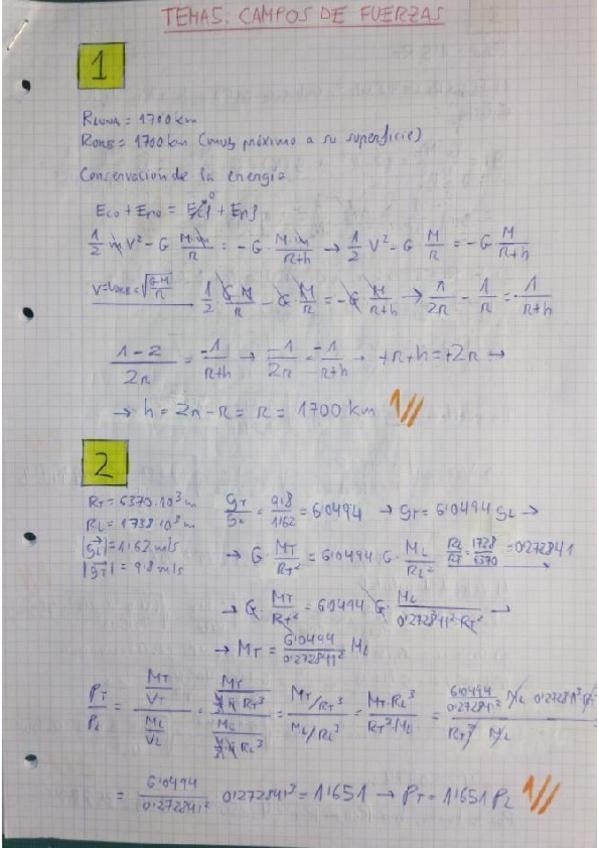 TEMA5: CAMPOS DE FUERZAS
1
RLUNA = 1700 km
RORB = 1700 km (muy próximo a su superficie)
Conservación de la energía
Eco + Epo = Ecf⁰ + Epf
1/2 m V² - G M·m/R = - G M·m/R+h → 1/2 V² - G M/R = - G M/R+h
V = VORB = √(G·M/R) 1/2 G·M/R - G M/R = - G M/R+h → 1/2R - 1/R = -1/R+h
1-2/2R = -1/R+h → -1/2R = -1/R+h → +R+h = +2R →
→ h = 2R - R = R = 1700 km 1//
2
RT = 6370·10³ m
RL = 1738·10³ m
|gL| = 1'62 m/s
|gT| = 9'8 m/s
gT/gL = 9'8/1'62 = 6'0494 → gT = 6'0494 gL →
→ G· MT/RT² = 6'0494 · G· ML/RL² RL/RT = 1738/6370 = 0'272841
→ G· MT/RT² = 6'0494 · G· ML/0'272841²·RT² →
→ MT = 6'0494/0'272841² ML
ρT/ρL = MT/VT / ML/VL = MT/4/3 π RT³ / ML/4/3 π RL³ = MT/RT³ / ML/RL³ = MT·RL³/RT³·ML = 6'0494/0'272841² ML 0'272841³ / RT³ ML
= 6'0494/0'272841² 0'272841³ = 1'651 → ρT = 1'651 ρL 1//